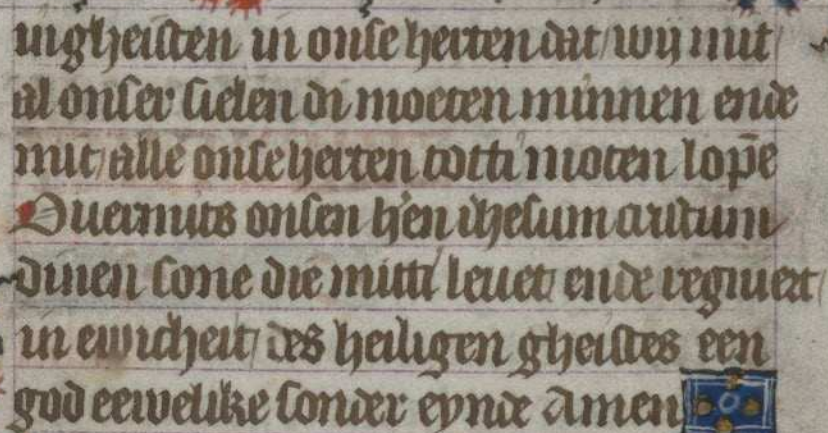 uigheiscten in onse herten dat wij mit
al onser sielen di moeten minnen ende
mit alle onse herten totti moten lopē
Ouermits onsen h'en ihesum cristum
dinen sone die mitti leuet ende regniert
in ewicheit des heiligen gheistes een
god eewelike sonder eynde Amen